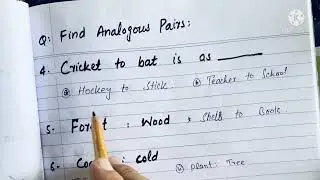 Q: Find Analogous Pairs:
4. Cricket to bat is as
ⓐ Hockey to Stick. ⓑ Teacher to School
5. Forest : Wood to Book
6. : cold Plant : Tree